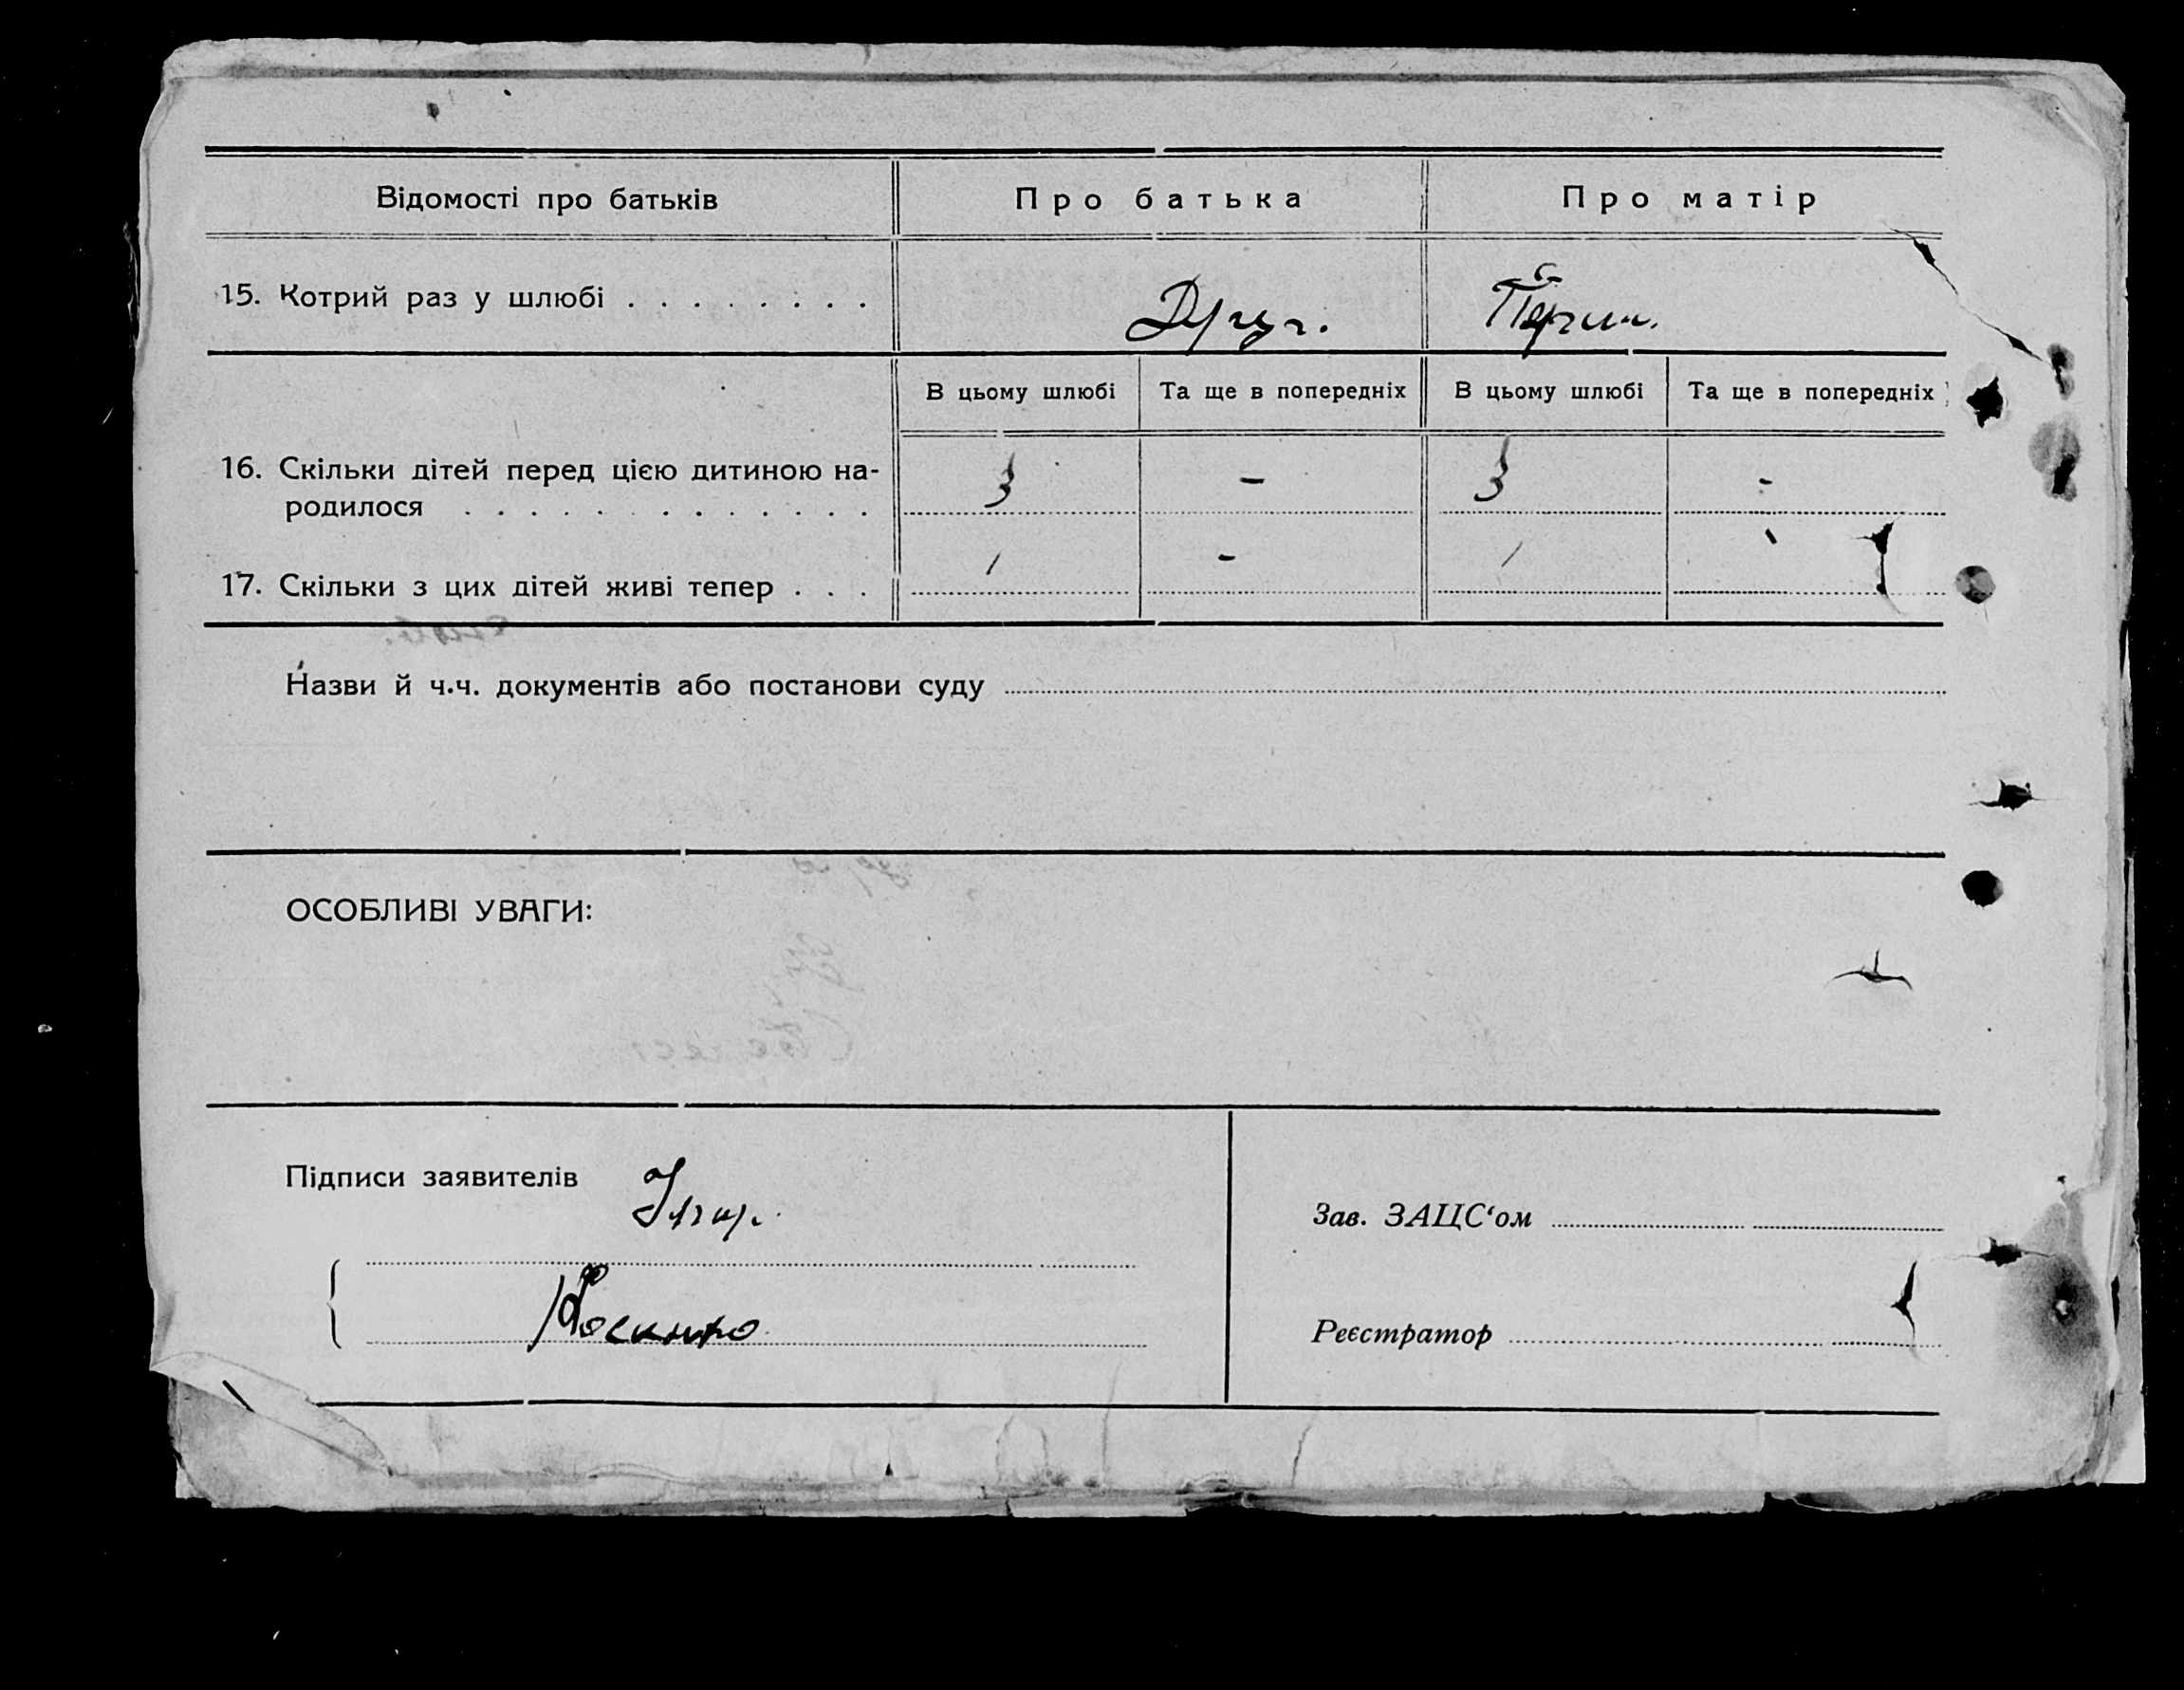 Відомості про батьків Про батька Про матір
15. Котрий раз у шлюбі . . . . . . . . Друг. Перш.
В цьому шлюбі Та ще в попередніх В цьому шлюбі Та ще в попередніх
16. Скільки дітей перед цією дитиною на- 3 - 3 -
родилося . . . . . . . . . . . . .
17. Скільки з цих дітей живі тепер . . . 1 - 1
Назви й ч.ч. документів або постанови суду
ОСОБЛИВІ УВАГИ:
Підписи заявителів
Зав. ЗАЦС‘ом
Реєстратор